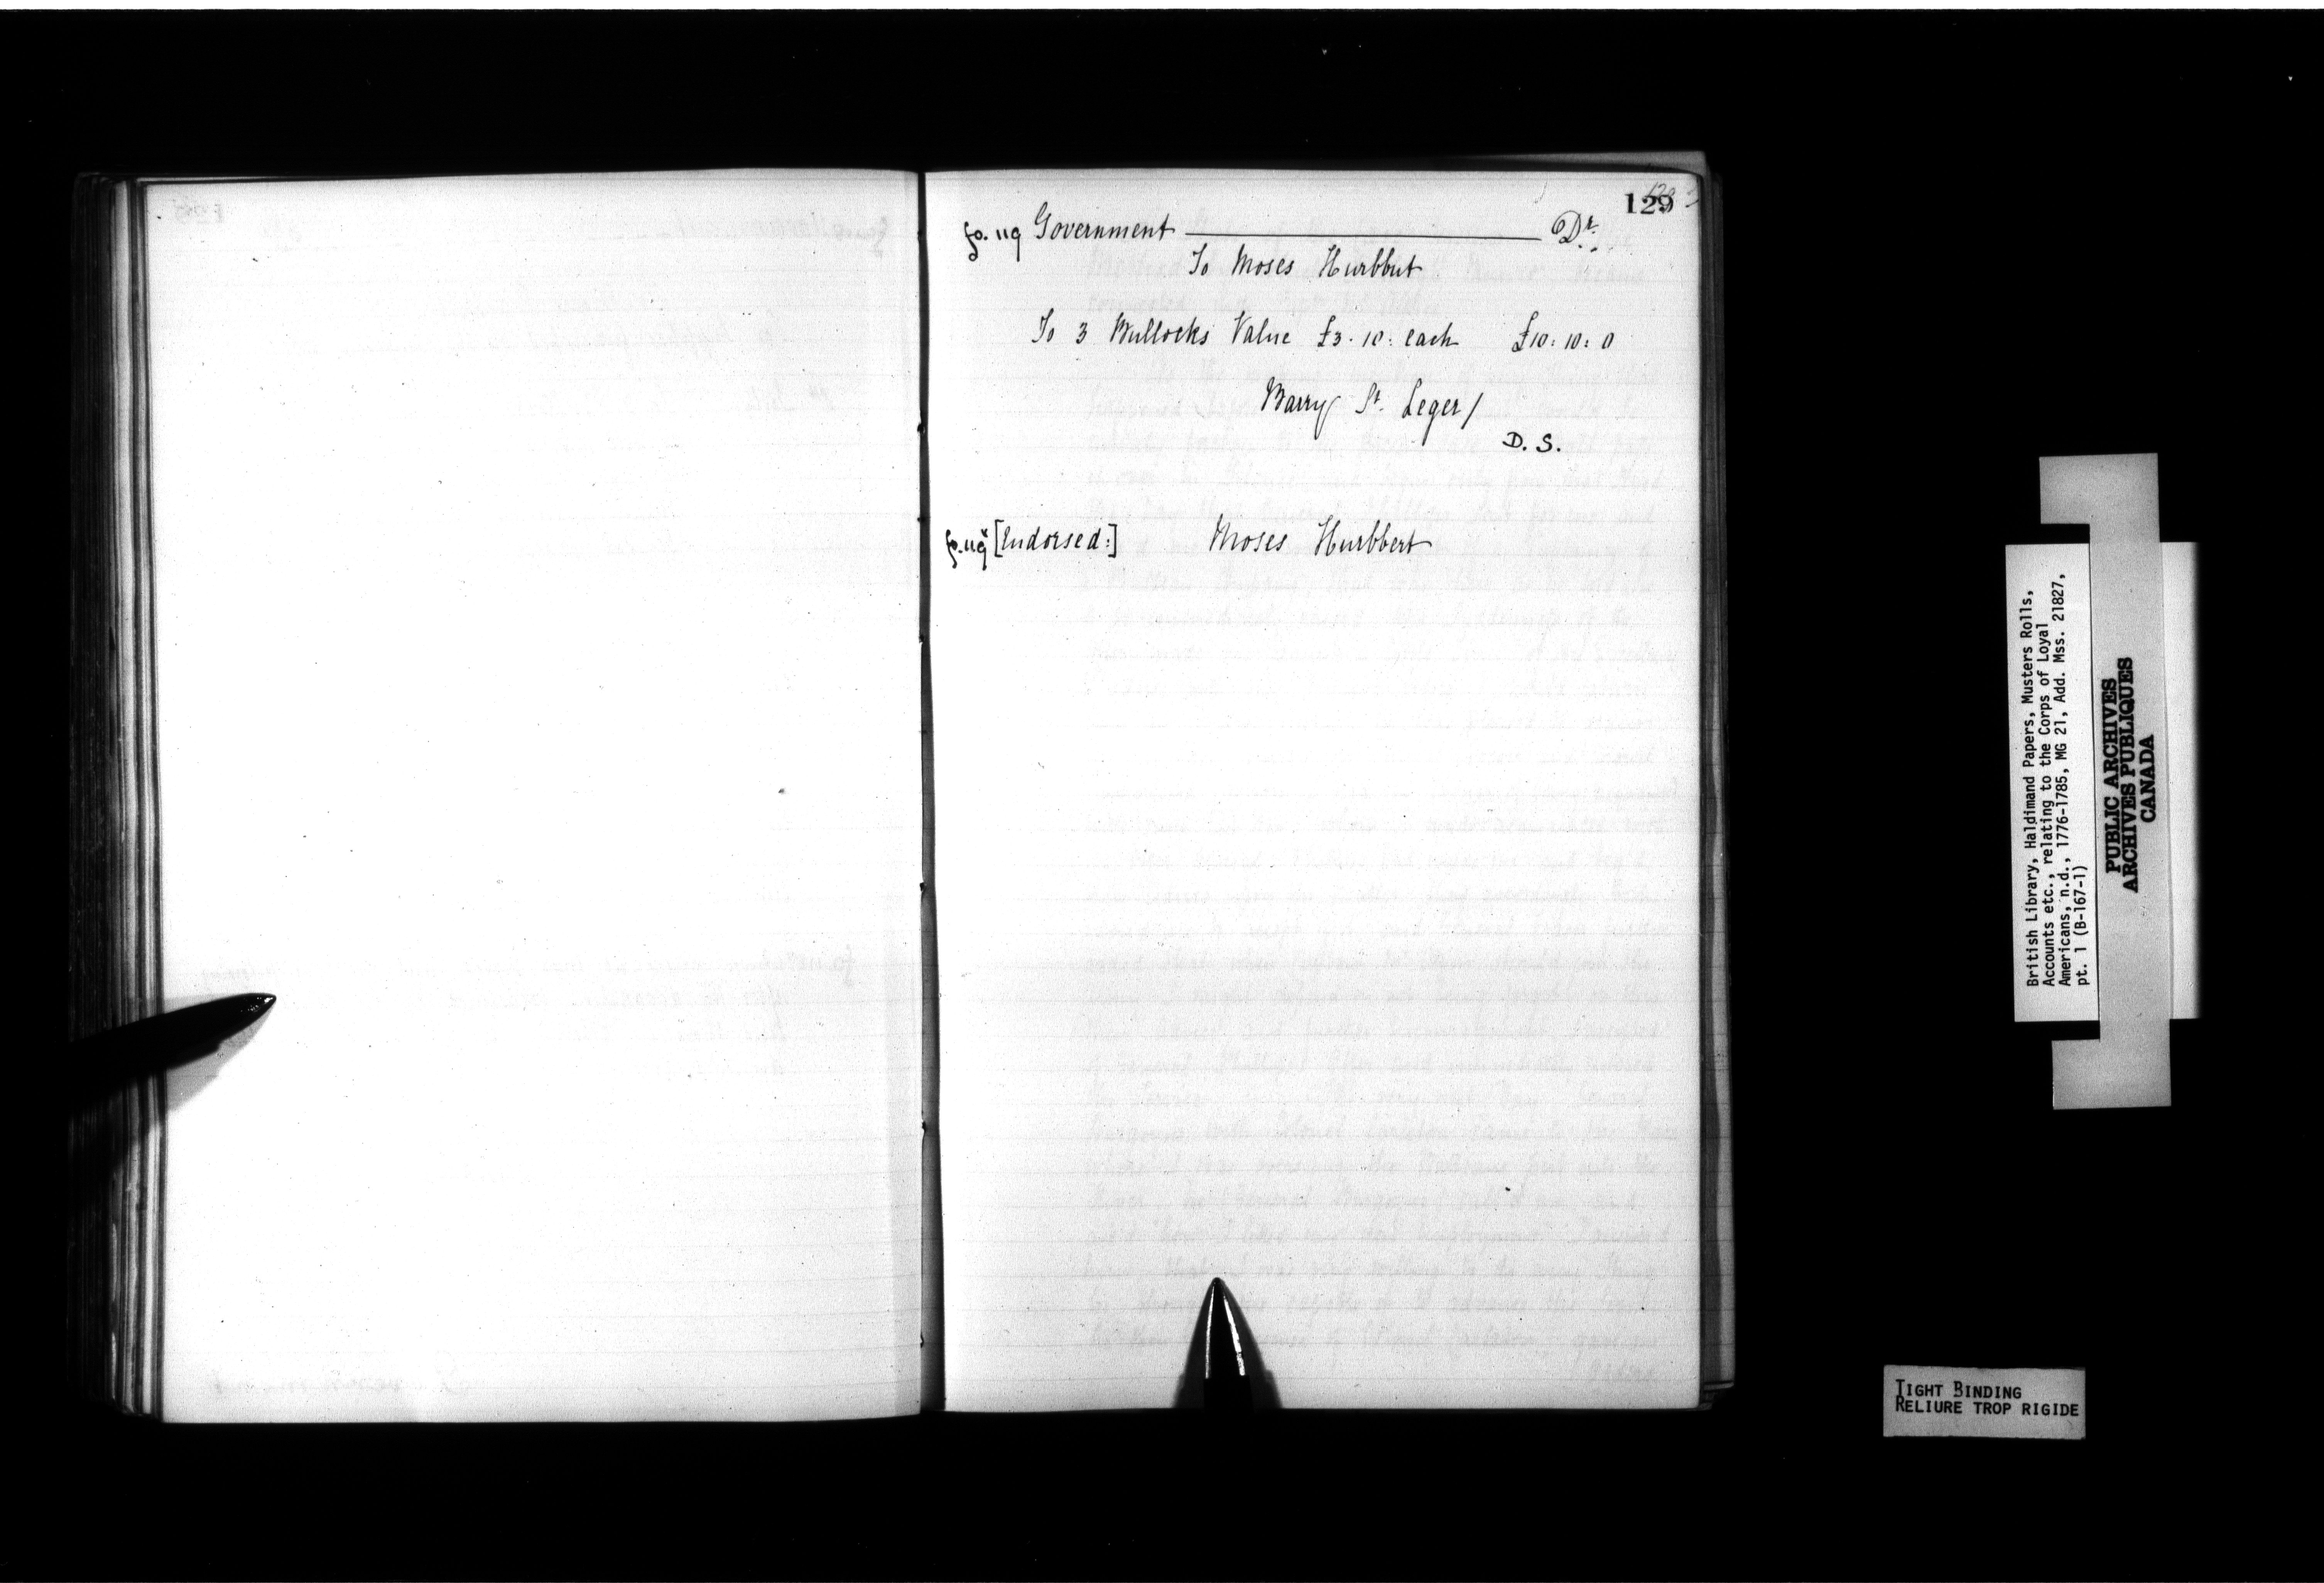 129
fo. 119 Government Dr.
To Moses Hurbbut
To 3 Bullocks Value £3. 10: each £10: 10: 0
Barry St. Leger/
D. S.
fo. 119v [Endorsed:] Moses Hurbbert
British Library, Haldimand Papers, Musters Rolls,
Accounts etc., relating to the Corps of Loyal
Americans, n.d., 1776-1785, MG 21, Add. Mss. 21827,
pt. 1 (B-167-1)
PUBLIC ARCHIVES
ARCHIVES PUBLIQUES
CANADA
TIGHT BINDING
RELIURE TROP RIGIDE